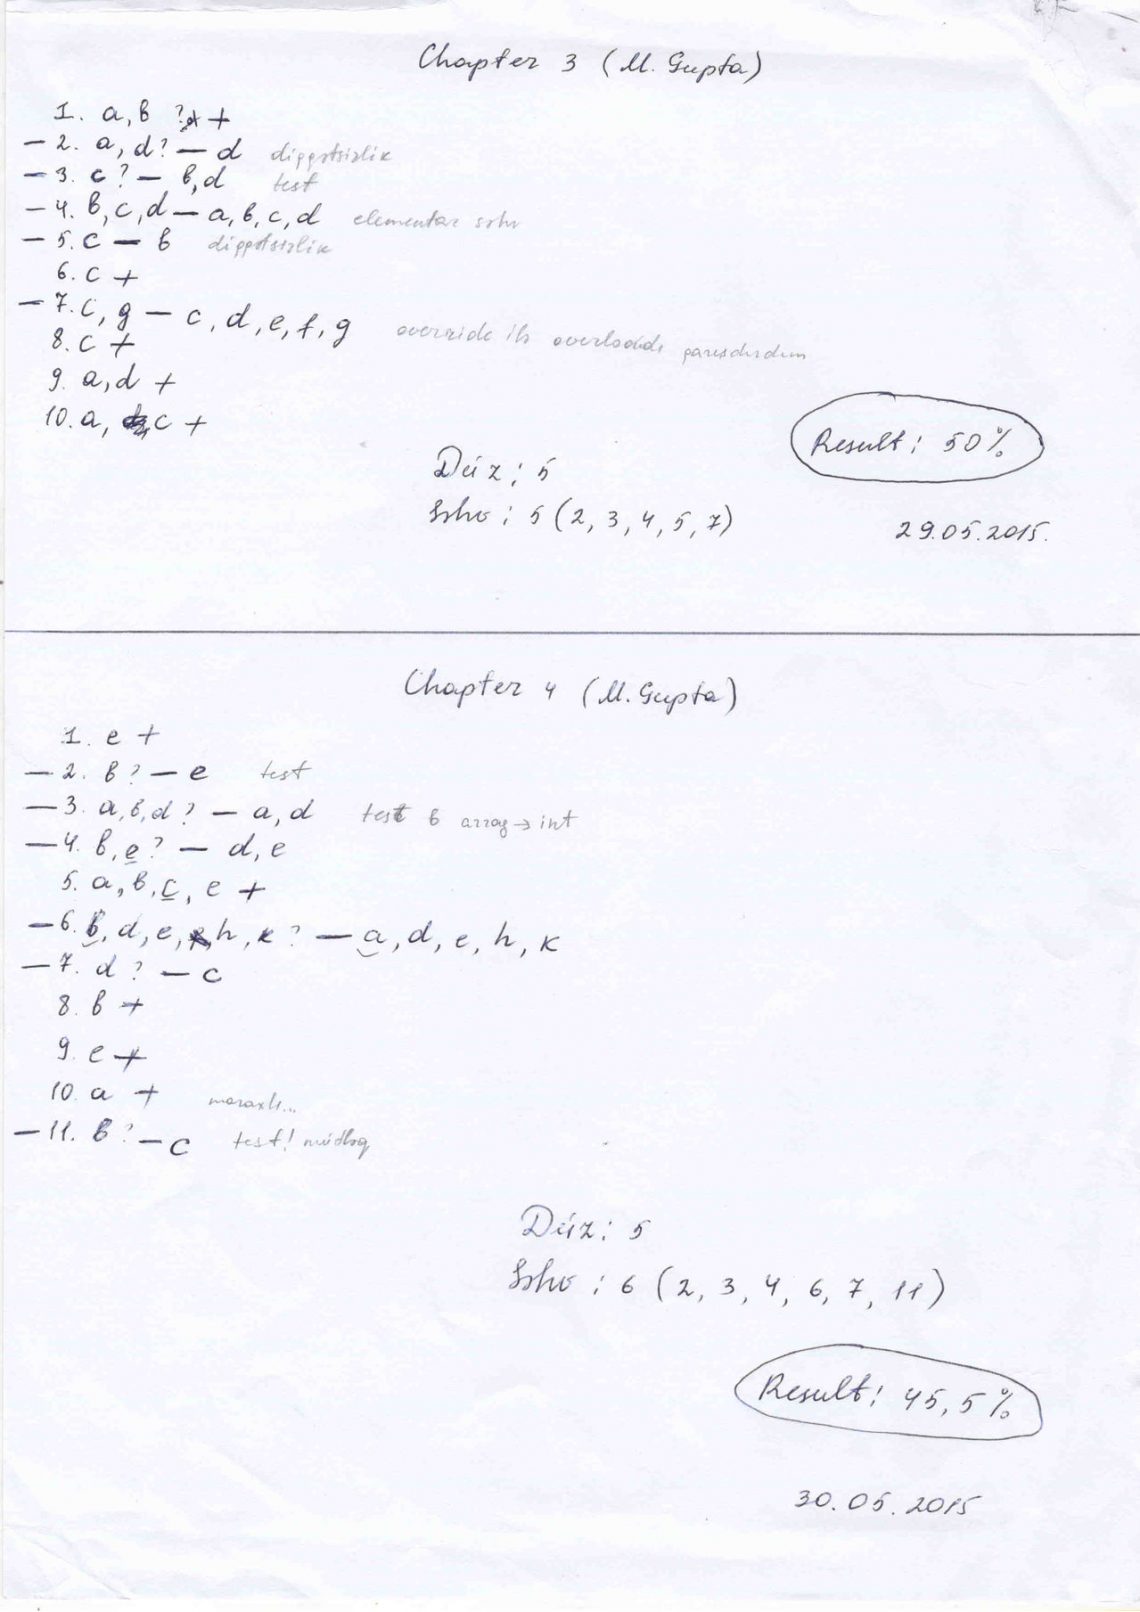 Chapter 3 (M. Gupta)
1. a, b ? +
– 2. a, d? — d diqqətsizlik
– 3. c? — b, d test
– 4. b, c, d — a, b, c, d elementar səhv
– 5. c — b diqqətsizlik
6. c +
– 7. c, g — c, d, e, f, g override ilə overloadda
8. c +
9. a, d +
10. a, c +
Result: 50%
Düz: 5
Səhv: 5 (2, 3, 4, 5, 7)
29.05.2015.
Chapter 4 (M. Gupta)
1. e +
– 2. b? — e test
– 3. a, b, d? — a, d test b array → int
– 4. b, e? — d, e
5. a, b, c, e +
– 6. b, d, e, h, k? — a, d, e, h, k
– 7. d? — c
8. b +
9. e +
10. a + maraqlı...
– 11. b? — c test!
Düz: 5
Səhv: 6 (2, 3, 4, 6, 7, 11)
Result: 45,5%
30.05.2015